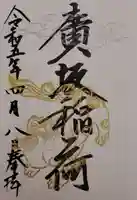 奉拝
廣坂稲荷
令和五年四月八日